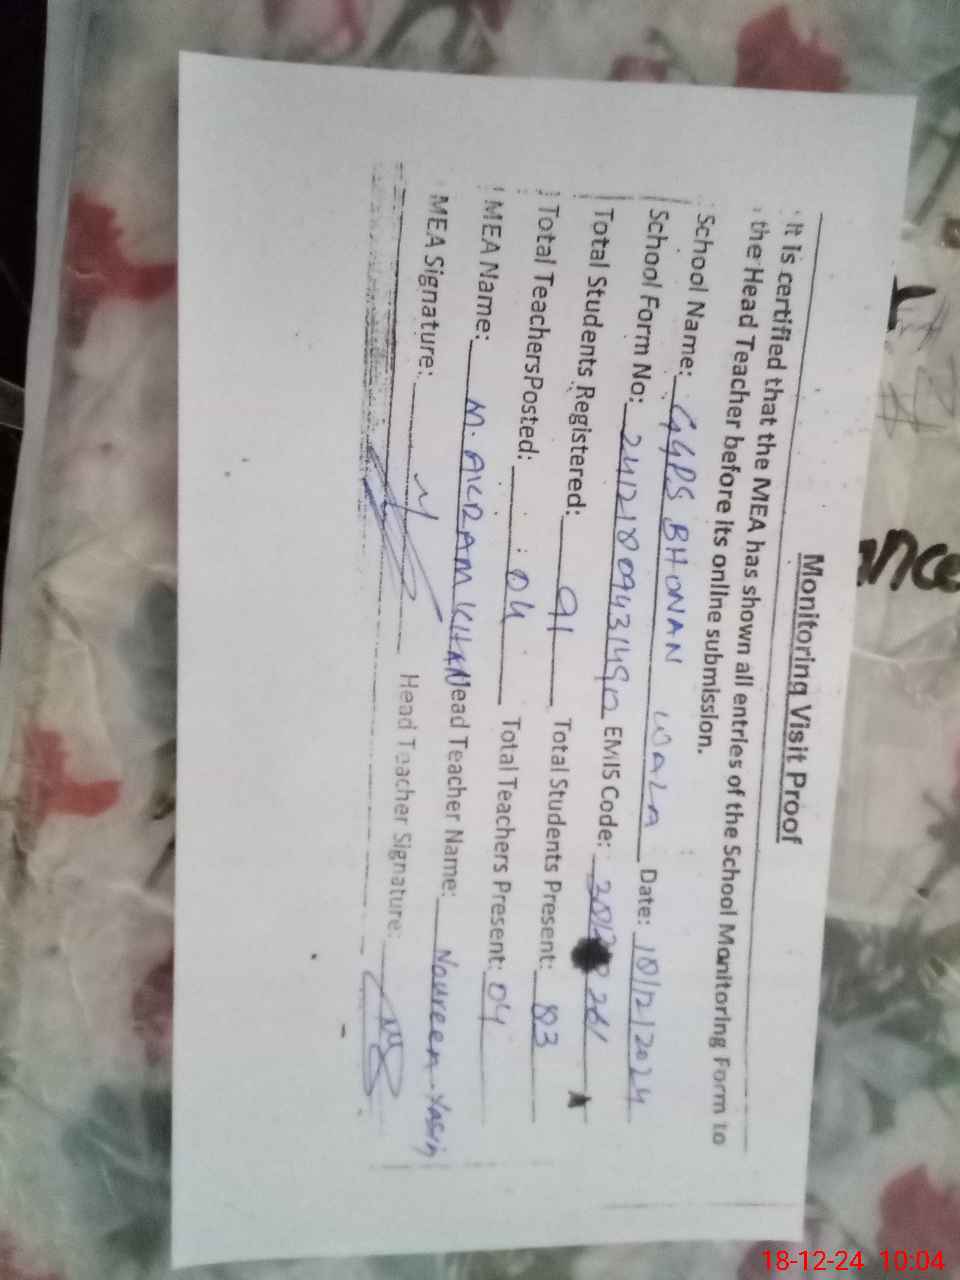 Monitoring Visit Proof
It is certified that the MEA has shown all entries of the School Monitoring Form to
the Head Teacher before its online submission.
School Name: GGPS BHONAN WALA Date: 18/12/2024
School Form No: EMIS Code:
Total Students Registered: 91 Total Students Present: 83
Total TeachersPosted: 04 Total Teachers Present: 04
MEA Name: M. AKRAM KHAN ead Teacher Name: Noureen Yasin
MEA Signature: Head Teacher Signature:
ance
18-12-24 10:04